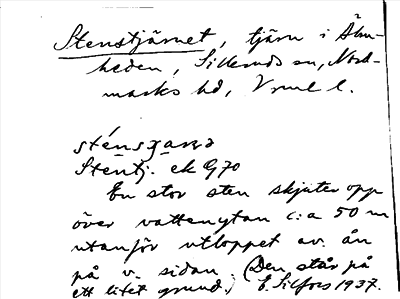 Stenstjärnet, tjärn i Älm-
heden, Silleruds sn, Nord-
marks hd, Vrml l.
sténsɣarnə
Stentj. ek G70
En stor sten skjuter opp
över vattenytan c:a 50 m
utanför utloppet av ån
på v. sidan. (Den står på
ett litet grund.) E. Silfors 1937.